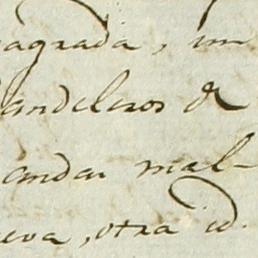 sagrada, un
andeleros de
andas mal-
eva, otra id.